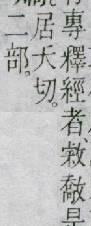 專釋經者、敹敽是
居大切。
二部。